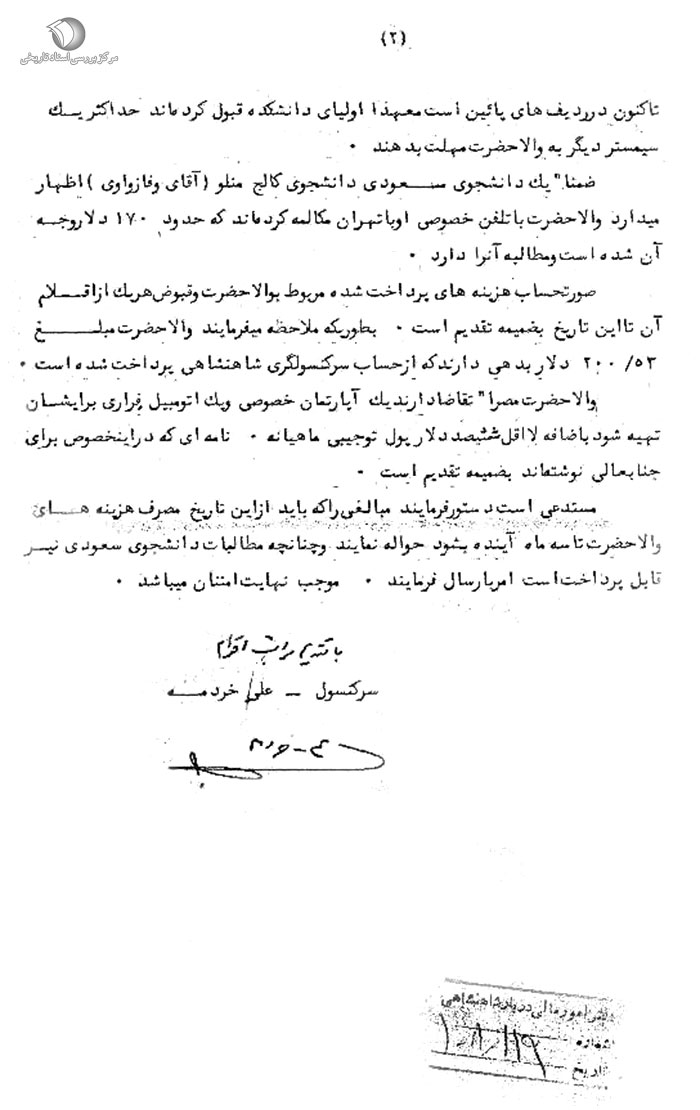 (۲)
مرکز بررسی اسناد تاریخی
تاکنون در ردیف های پائین است معهذا اولیای دانشکده قبول کرده‌اند حداکثر یك
سیمستر دیگر به والاحضرت مهلت بدهند .
ضمنا" یك دانشجوی سعودی دانشجوی کالج منلو ( آقای وفازواوی ) اظهار
میدارد والاحضرت با تلفن خصوصی او با تهران مکالمه کرده‌اند که حدود ۱۷۰ دلار وجه
آن شده است و مطالبه آنرا دارد .
صورتحساب هزینه های پرداخت شده مربوط بوالاحضرت و قبوض هریك از اقلام
آن تا این تاریخ بضمیمه تقدیم است . بطوریکه ملاحظه میفرمایند والاحضرت مبلغ
۲۰۰/۵۳ دلار بدهی دارند که از حساب سرکنسولگری شاهنشاهی پرداخت شده است .
والاحضرت مصرا" تقاضا دارند یك آپارتمان خصوصی ویك اتومبیل فراری برایشان
تهیه شود باضافه لااقل ششصد دلار پول توجیبی ماهیانه . نامه ای که در اینخصوص برای
جنابعالی نوشته‌اند بضمیمه تقدیم است .
مستدعی است دستور فرمایند مبالغی راکه باید از این تاریخ مصرف هزینه های
والاحضرت تا سه ماه آینده بشود حواله نمایند و چنانچه مطالبات دانشجوی سعودی نیز
قابل پرداخت است امر بارسال فرمایند . موجب نهایت امتنان میباشد .
با تقدیم مراتب احترام
سرکنسول - علی خردمند
دفتر امور مالی دربار شاهنشاهی
شماره
تاریخ